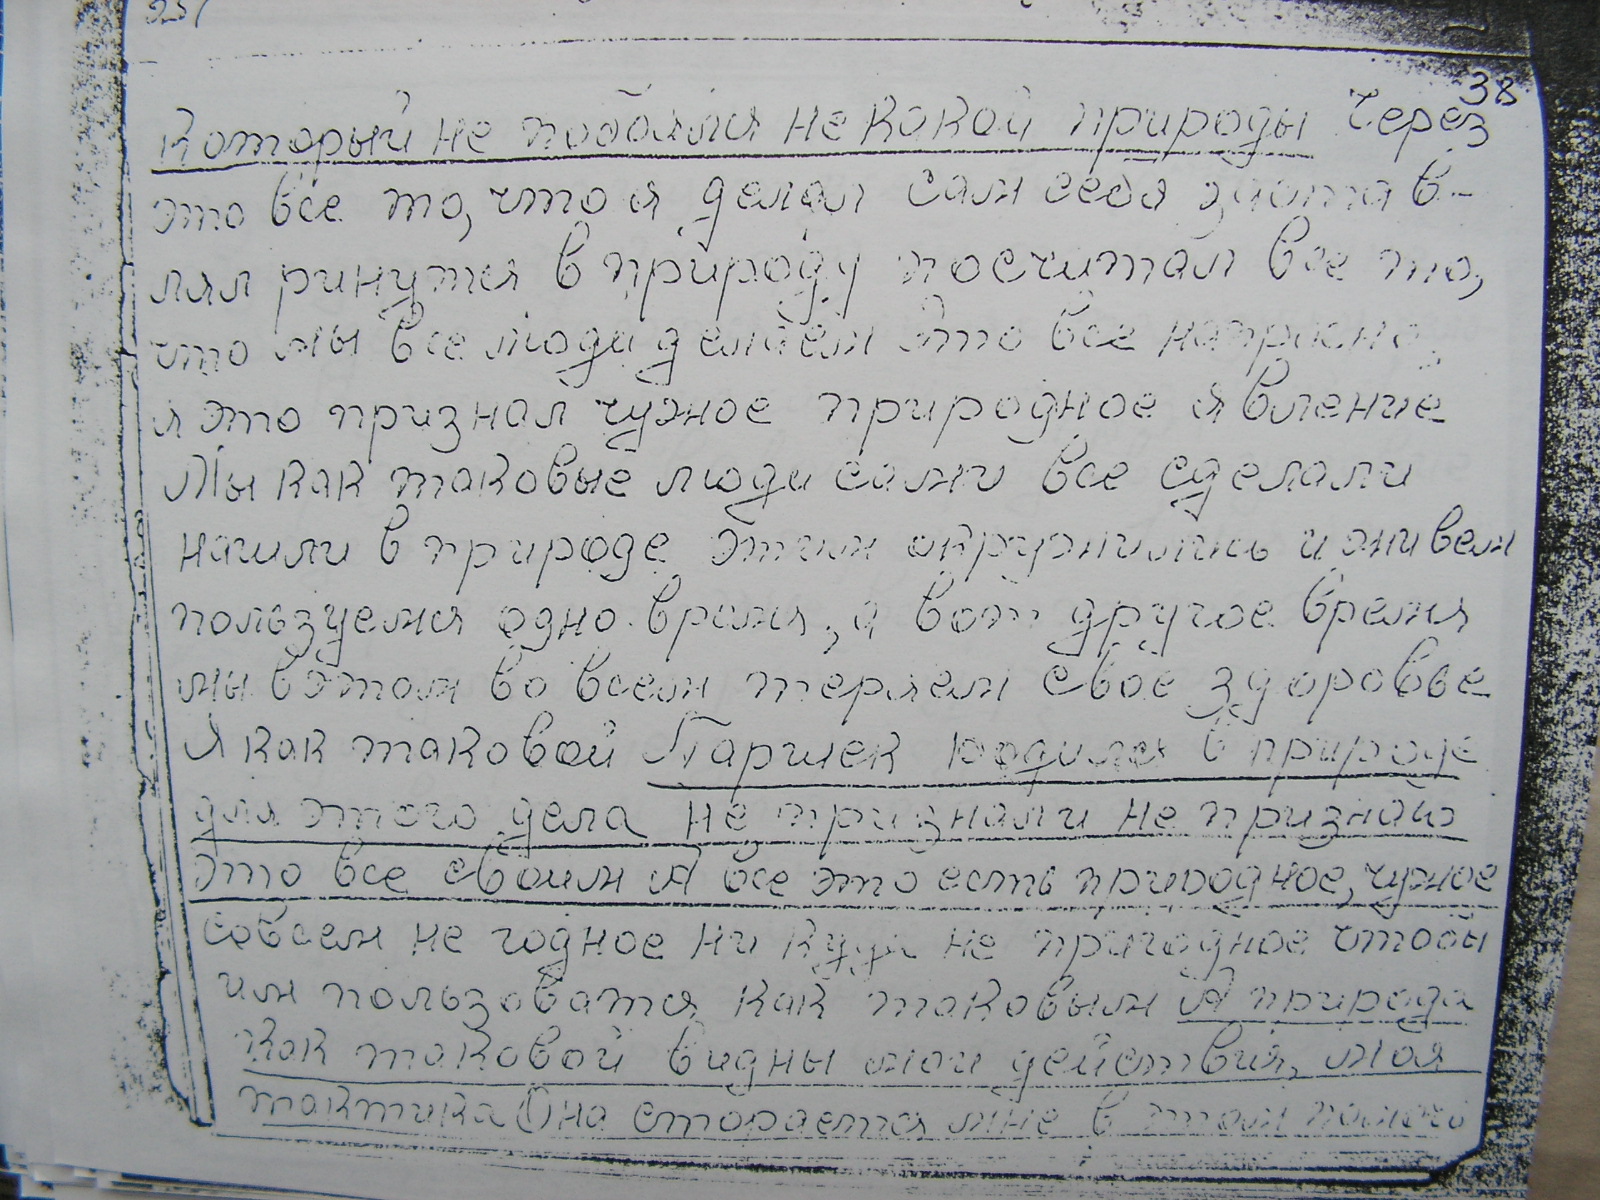 38
который не побояля не какой природы Через
это все то, что я делал сам себя застав-
лял ринутся в природу посчитал все то,
что мы все люди делаем это все напрасно,
я это признал чужое природное явление
Мы как таковые люди сами все сделали
нашли в природе этим окружились и живем
пользуемся одно время, а вот другое время
мы в этом во всем теряем свое здоровье
Я как таковой Паршек родился в природе
для этого дела не признали не признаю
это все своим А все это есть природное, чужое
совсем не годное ни куда не пригодное чтобы
им пользоватся как таковым А природа
как таковой видны мои действия, моя
тактика Она старается мне в этом помочь